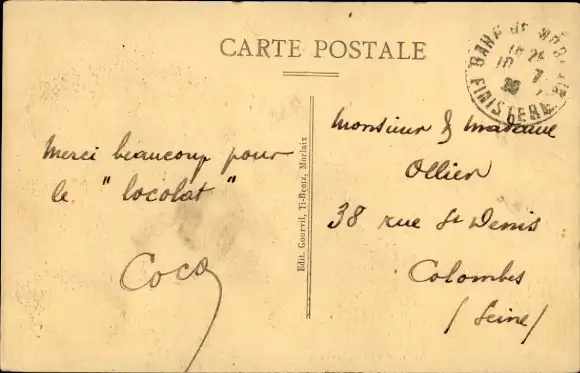 CARTE POSTALE
FINISTERE
Merci beaucoup pour
le "locolat"
Coco
Edit. Gourvil, Ti-Breiz, Morlaix
Monsieur & Madame
Ollier
38 rue St Denis
Colombes
/Seine/